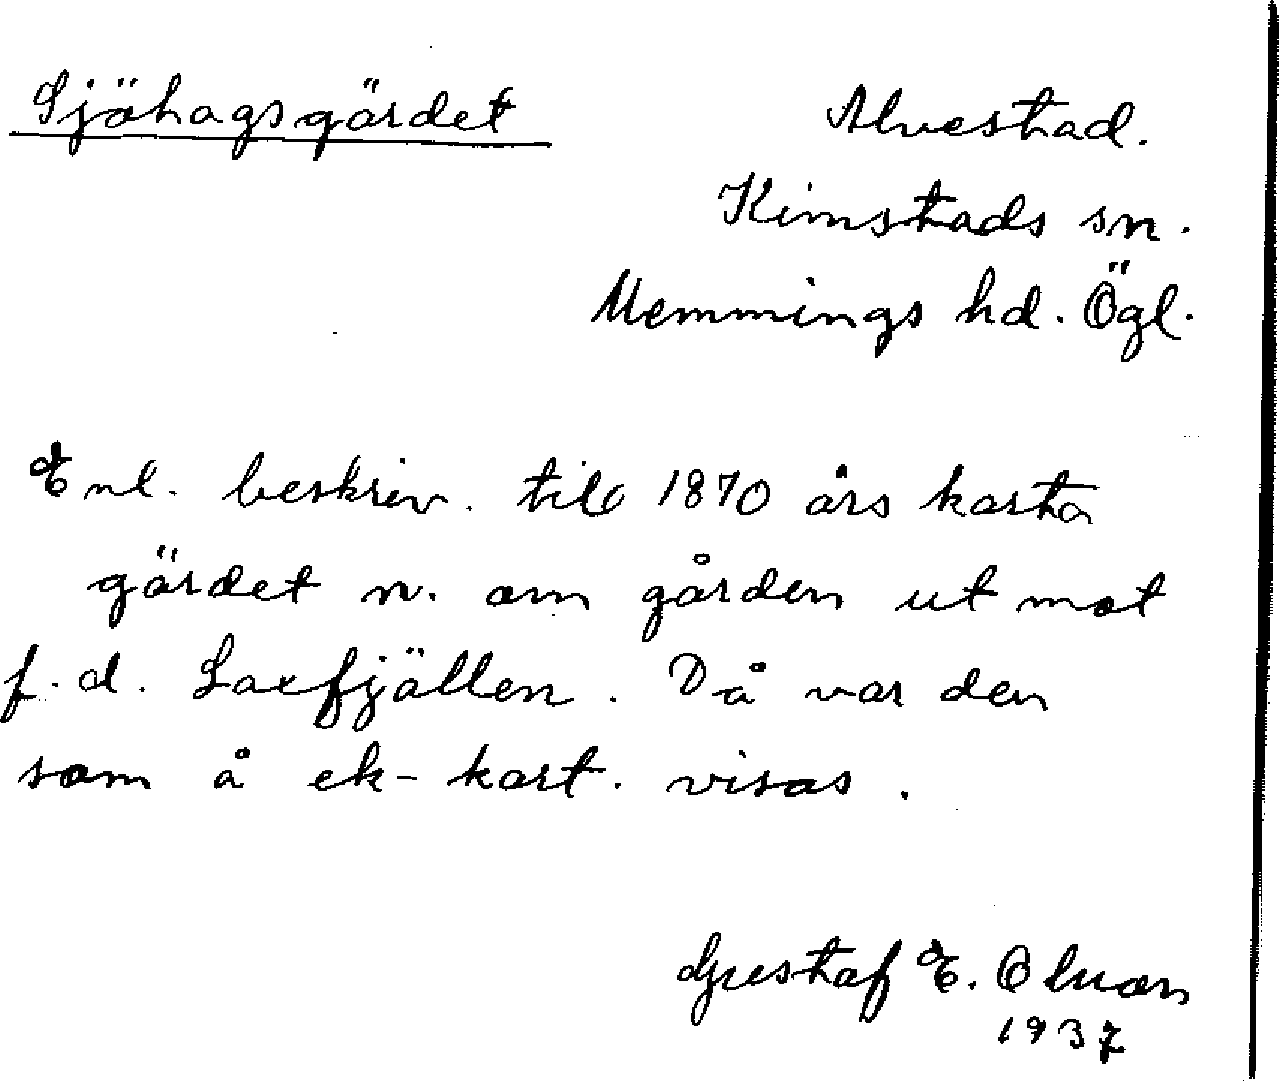 Sjöhagsgärdet
Alvestad.
Kimstads sn.
Memmings hd. Ögl.
Enl. beskriv. till 1870 års karta
gärdet n. om gården ut mot
f.d. Laxfjällen. Då var den
som å ek-kart. visas.
Gustaf E. Olson
1937